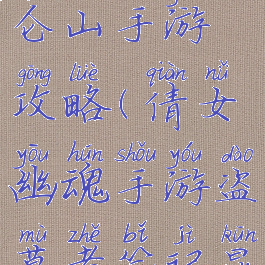 仑山手游
gōng lüè qiàn nǚ
攻略(倩女
yōu hún shǒu yóu dào
幽魂手游盗
mù zhě bǐ jì kūn